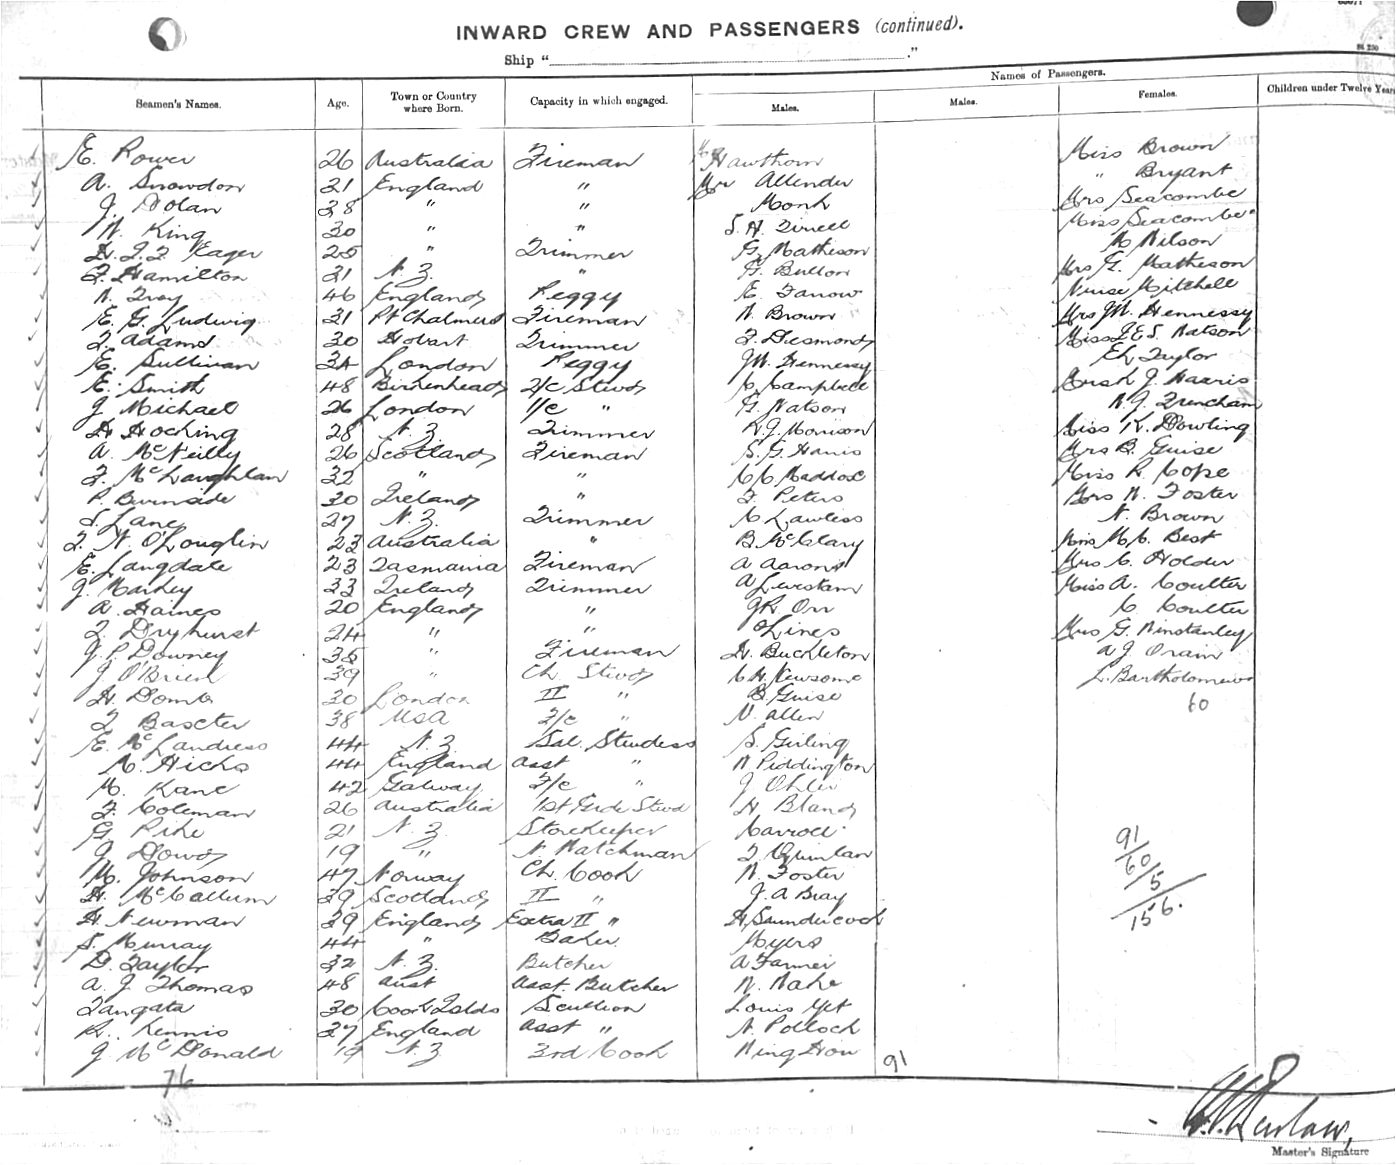 INWARD CREW AND PASSENGERS (continued).
Ship " ."
Names of Passengers.
Seamen's Names. Age. Town or Country where Born. Capacity in which engaged. Males. Males. Females. Children under Twelve Years
E. Power 26 Australia Fireman Hawthorn Miss Brown
A. Snowdon 21 England " Mr Allender " Bryant
J. Dolan 38 " " Monk Mrs Seacombe
W. King 30 " " S. H. Tirrell Miss Seacombe
H. J. F. Eager 25 Trimmer G. Matheson M Wilson
F. Hamilton 31 N. Z. " G. Bullon Mrs G. Matheson
W. Troy 46 England Peggy E. Farrow Nurse Mitchell
E. G. Ludwig 31 Pt Chalmers Fireman W. Brown Mrs J.M. Hennessy
F. Adams 30 Hobart Trimmer F. Desmond Miss I.E.S. Watson
E. Sullivan 34 London Peggy J.M. Hennessy E L Taylor
E. Smith 48 Birkenhead 2/c Stewd C. Campbell J. Harris
J. Michael 26 London 1/c " G. Watson W. J. Trencham
H Hocking 28 N. Z. Trimmer R. J. Morrison Miss K. Dowling
A. McNeilly 26 Scotland Fireman S. G. Harris Mrs B. Guise
F. McLaughlan 32 " " C C Maddox Miss R. Cope
P. Burnside 30 Ireland " F. Peters Mrs W. Foster
S. Lane 27 N. Z. Trimmer C Lawless W. Brown
F. W. O'Louglin 23 Australia " B. McClary Miss M. C. Best
E. Langdale 23 Tasmania Fireman A Aarons Mrs C. Holder
J. Markey 33 Ireland Trimmer A Levistam Miss A. Coulter
A. Haines 20 England " J R. Orr C Coulter
F. Dryhurst 24 " " Lines Mrs G. Winstanley
J. P. Downey 35 " Fireman H. Buckleton A J Orain
J O'Brien 39 " Ch. Stewd C H. Newsome L. Bartholomew
H. Domb 30 London II " B. Guise 60
F Baxter 38 USA 2/c " N. Allen
E. McLandress 44 N. Z. Sal. Stewdess S. Girling
M. Hicks 44 England Asst " W Piddington
M. Kane 42 Galway 2/c " J Ohlin
F. Coleman 26 Australia 1st Grde Stewd H Bland
G. Pike 21 N. Z. Storekeeper Carroll
J Dowd 19 " N. Watchman F Quinlan 91
M. Johnson 47 Norway Ch. Cook W. Foster 60
H. McCallum 39 Scotland II " J. A Bray 5
H Newman 29 England Extra II " H. Saundercock 156.
S. Murray 44 " Baker Myers
D. Taylor 32 N. Z. Butcher A Farmer
A. J Thomas 48 Aust Asst. Butcher W. Wake
Tangata 30 Cook Islds Scullion Louis Yet
R. Kennis 27 England Asst " W. Pollock
J McDonald 19 N. Z 3rd Cook Wing How
76 91
Master's Signature